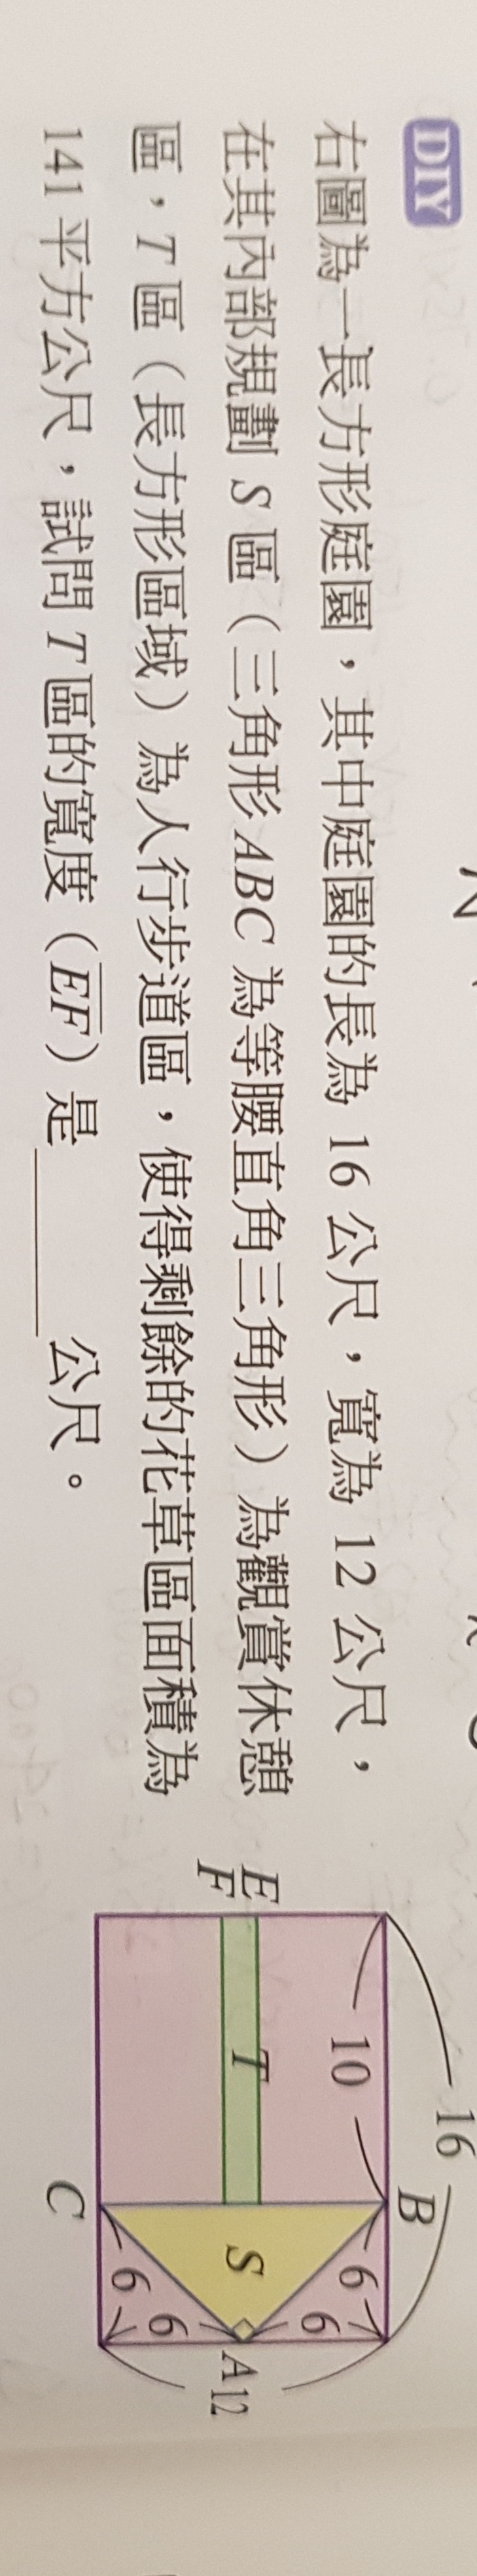 DIY
右圖為一長方形庭園，其中庭園的長為 16 公尺，寬為 12 公尺，
在其內部規劃 S 區（三角形 ABC 為等腰直角三角形）為觀賞休憩
區，T 區（長方形區域）為人行步道區，使得剩餘的花草區面積為
141 平方公尺，試問 T 區的寬度（EF）是______公尺。
16
10
B
6
6
E
F
T
S
A
12
6
6
C